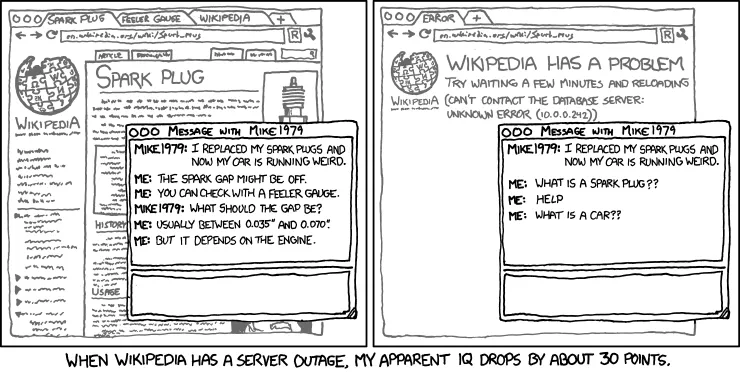 SPARK PLUG
FEELER GAUGE
WIKIPEDIA
+
en.wikipedia.org/wiki/Spark_plug
R
ARTICLE
SPARK PLUG
WIKIPEDIA
HISTORY
USAGE
MESSAGE WITH MIKE1979
MIKE1979: I REPLACED MY SPARK PLUGS AND
NOW MY CAR IS RUNNING WEIRD.
ME: THE SPARK GAP MIGHT BE OFF.
ME: YOU CAN CHECK WITH A FEELER GAUGE.
MIKE1979: WHAT SHOULD THE GAP BE?
ME: USUALLY BETWEEN 0.035" AND 0.070".
ME: BUT IT DEPENDS ON THE ENGINE.
ERROR
+
en.wikipedia.org/wiki/Spark_plug
R
WIKIPEDIA
WIKIPEDIA HAS A PROBLEM
TRY WAITING A FEW MINUTES AND RELOADING
(CAN'T CONTACT THE DATABASE SERVER:
UNKNOWN ERROR (10.0.0.242))
MESSAGE WITH MIKE1979
MIKE1979: I REPLACED MY SPARK PLUGS AND
NOW MY CAR IS RUNNING WEIRD.
ME: WHAT IS A SPARK PLUG??
ME: HELP
ME: WHAT IS A CAR??
WHEN WIKIPEDIA HAS A SERVER OUTAGE, MY APPARENT IQ DROPS BY ABOUT 30 POINTS.